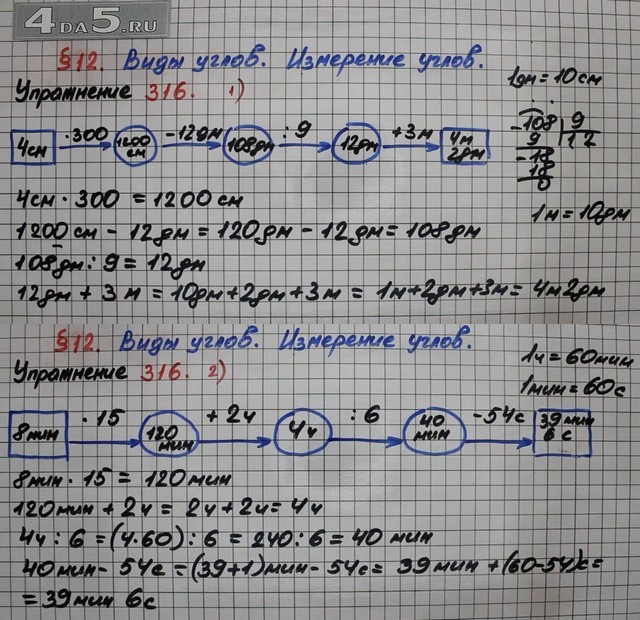 4DA5.RU
§12. Виды углов. Измерение углов.
Упражнение 316. 1)
1дм = 10см
4см ·300 1200 см -12дм 108дм :9 12дм +3м 4м 2дм
-108 9
9 12
-18
18
0
4см · 300 = 1200 см
1м = 10дм
1200 см - 12дм = 120дм - 12дм = 108дм
108дм : 9 = 12дм
12дм + 3м = 10дм+2дм+3м = 1м+2дм+3м = 4м2дм
§12. Виды углов. Измерение углов.
Упражнение 316. 2)
1ч = 60мин
1мин = 60с
8мин ·15 120 мин +2ч 4ч :6 40 мин -54с 39мин 6с
8мин · 15 = 120мин
120мин + 2ч = 2ч+2ч = 4ч
4ч : 6 = (4·60) : 6 = 240 : 6 = 40 мин
40мин - 54с = (39+1)мин - 54с = 39мин + (60-54)с =
= 39мин 6с